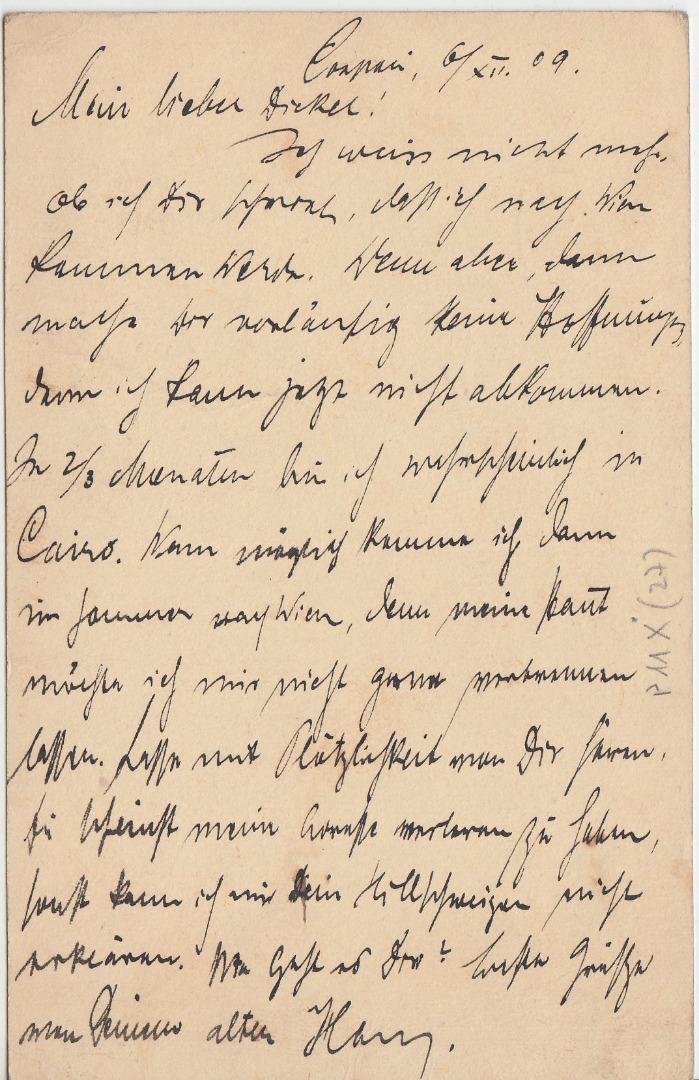 6/XII. 09.
Mein lieber Dickel!
Ich weiss nicht mehr,
ob ich Dir schrieb, dass ich nach Wien
kommen werde. Wenn aber, dann
mache Dir vorläufig keine Hoffnungen,
denn ich kann jetzt nicht abkommen.
In 2/3 Monaten bin ich wahrscheinlich in
Cairo. Wenn möglich komme ich dann
im Sommer nach Wien, denn meine Haut
möchte ich mir nicht gerne verbrennen
lassen. Lasse mit Plötzlichkeit von Dir hören,
Du scheinst meine Adresse verloren zu haben,
sonst kann ich mir Dein Stillschweigen nicht
erklären. Wie geht es Dir? Beste Grüsse
von Deinem alten